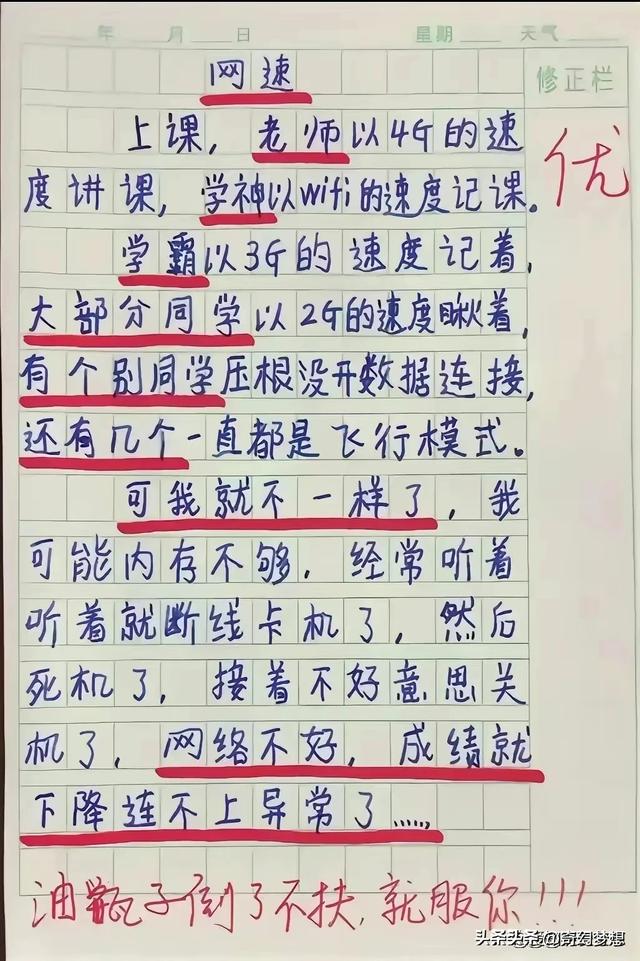 年 月 日 星期 天气
修正栏
网速
上课，老师以4G的速
度讲课，学神以wifi的速度记课。
学霸以3G的速度记着，
大部分同学以2G的速度瞅着，
有个别同学压根没开数据连接，
还有几个一直都是飞行模式。
可我就不一样了，我
可能内存不够，经常听着
听着就断线卡机了，然后
死机了，接着不好意思关
机了，网络不好，成绩就
下降连不上异常了……
优
油瓶子倒了不扶，就服你!!!
头条 @奇幻梦想